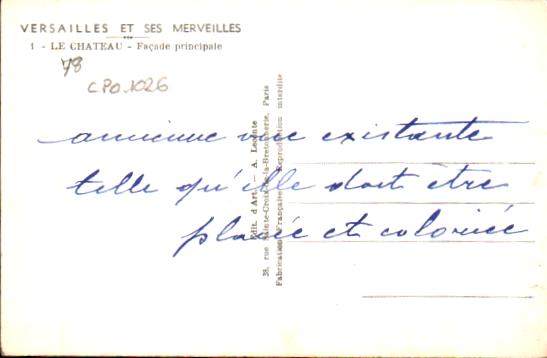 VERSAILLES ET SES MERVEILLES
1 - LE CHATEAU - Façade principale
78
CPO.1026
ancienne vue existante
telle qu'elle doit être
placée et coloriée
Edit. d'Art. — A. Leconte
38, rue Sainte-Croix-de-la-Bretonnerie, Paris
Fabrication Française - Reproduction interdite